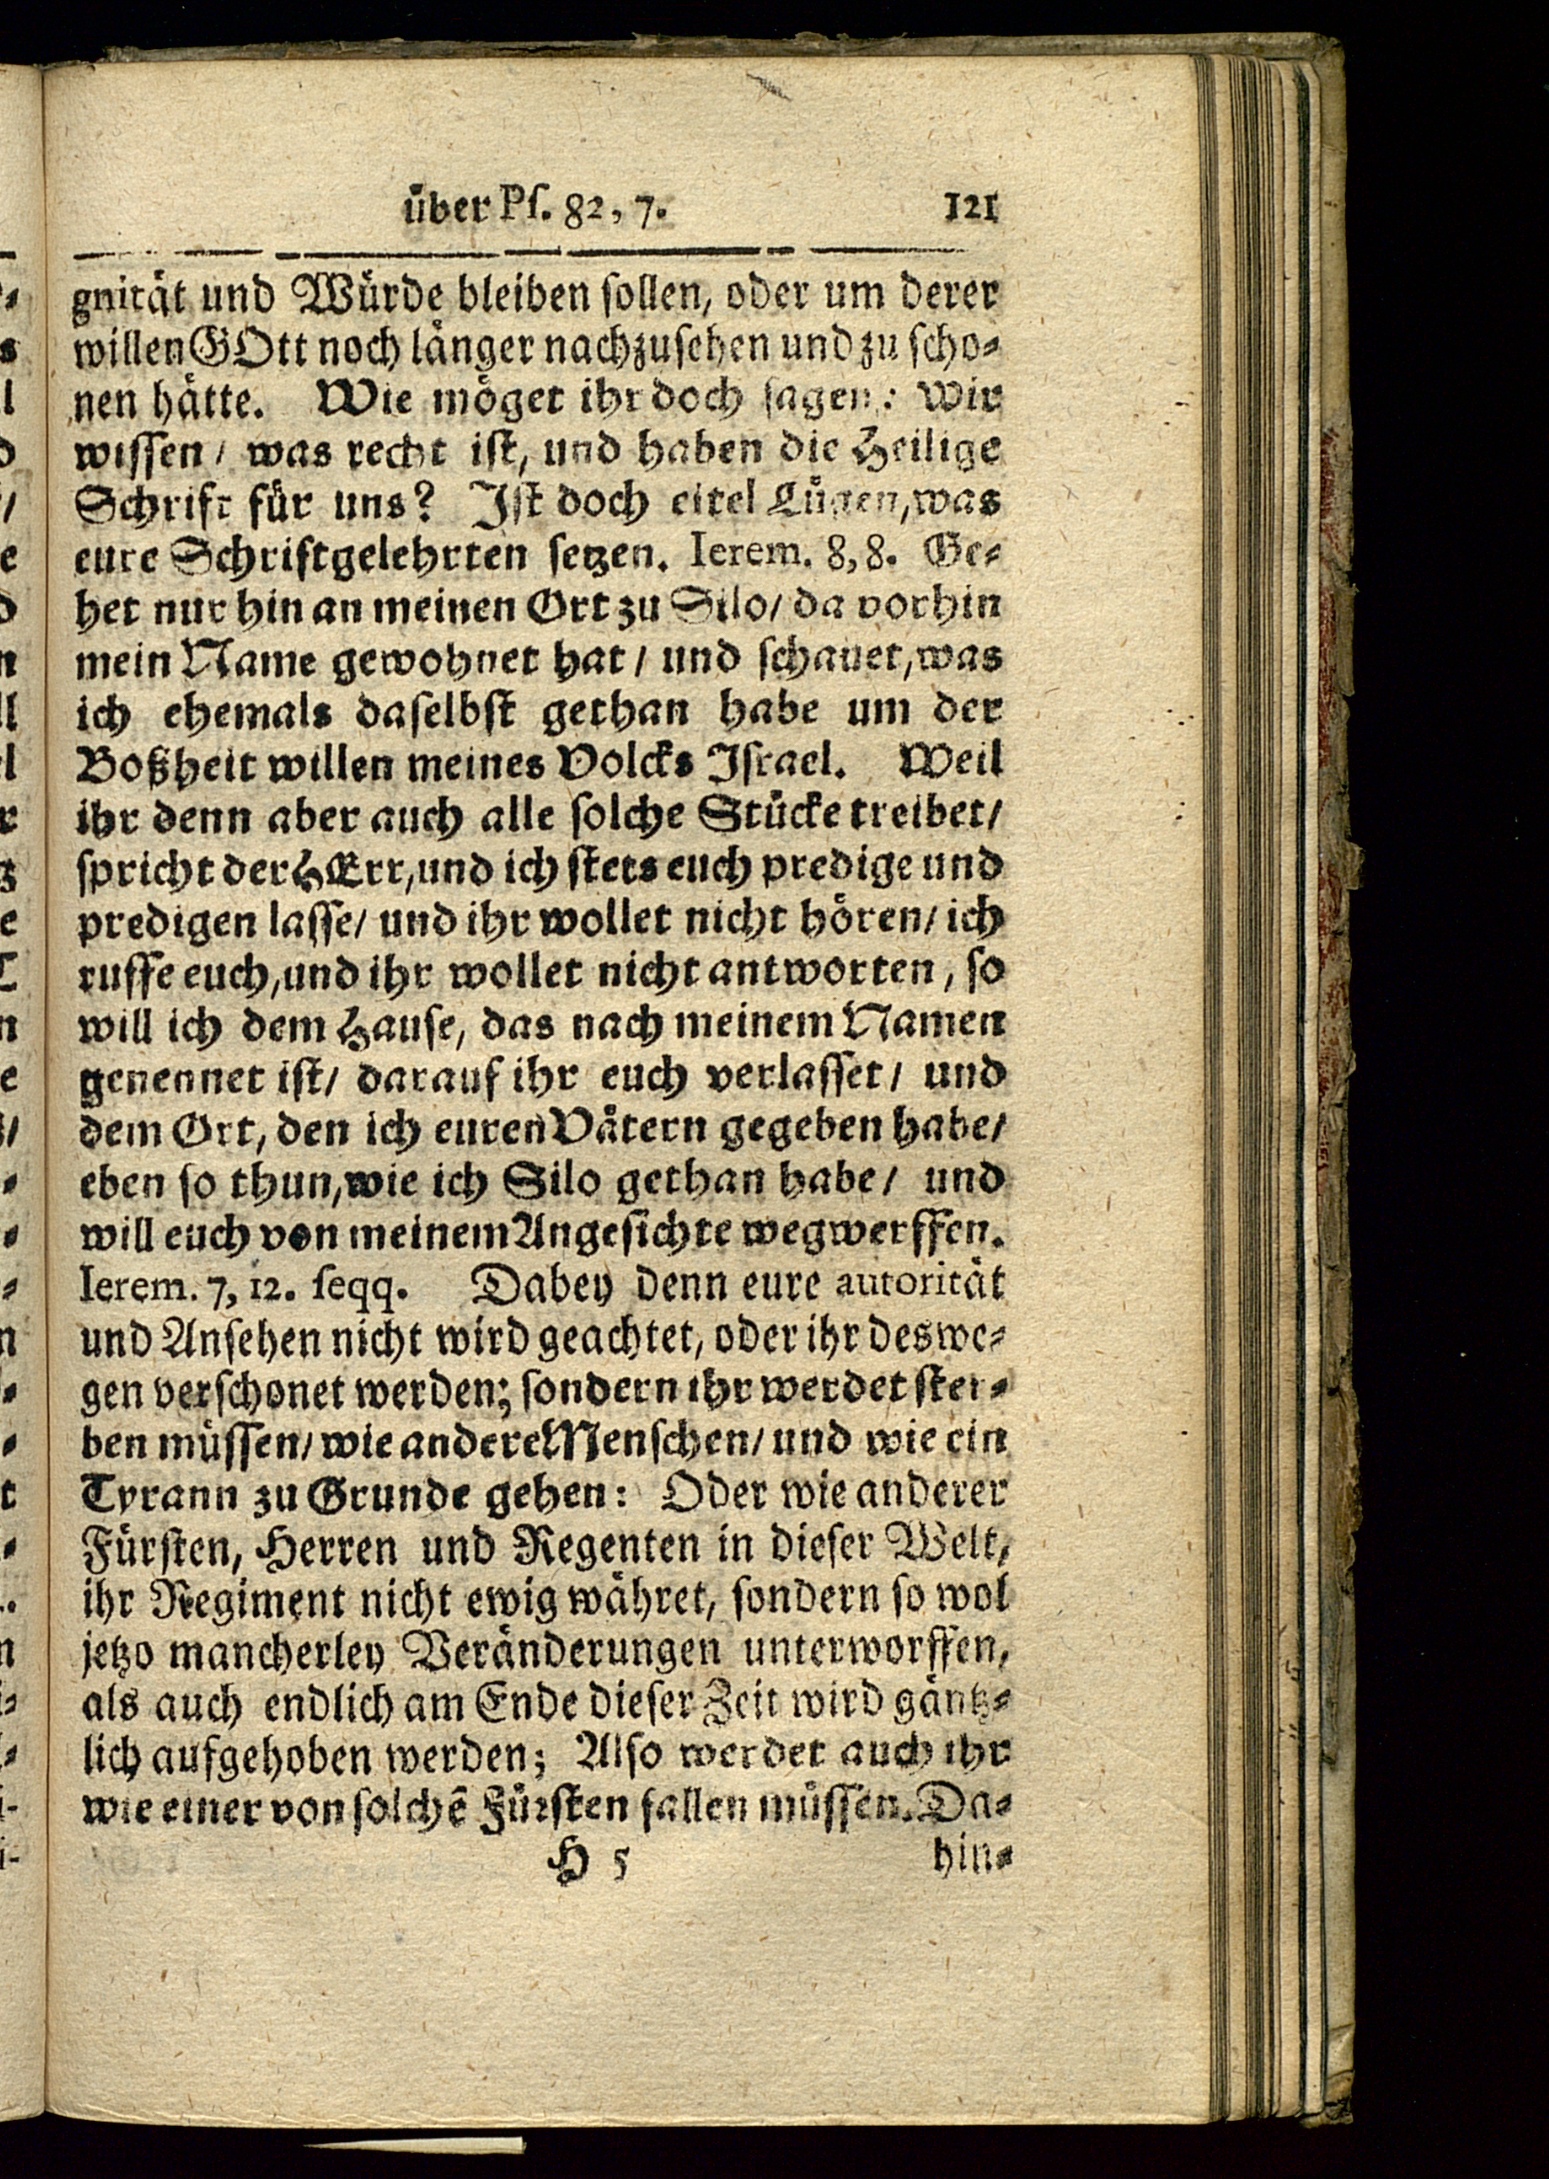 über Pſ. 82, 7. 121
gnität und Würde bleiben ſollen, oder um derer
willen GOtt noch länger nachzuſehen und zu ſcho⸗
nen hätte. Wie möget ihr doch ſagen: Wir
wiſſen / was recht iſt, und haben die Heilige
Schrift für uns? Iſt doch eitel Lügen, was
eure Schriftgelehrten ſetzen. Ierem. 8, 8. Ge⸗
het nur hin an meinen Ort zu Silo / da vorhin
mein Name gewohnet hat / und ſchauet, was
ich ehemals daſelbſt gethan habe um der
Boßheit willen meines Volcks Iſrael. Weil
ihr denn aber auch alle ſolche Stücke treibet /
ſpricht der HErr, und ich ſtets euch predige und
predigen laſſe / und ihr wollet nicht hören / ich
ruffe euch, und ihr wollet nicht antworten, ſo
will ich dem Hauſe, das nach meinem Namen
genennet iſt / darauf ihr euch verlaſſet / und
dem Ort, den ich euren Vätern gegeben habe /
eben ſo thun, wie ich Silo gethan habe / und
will euch von meinem Angeſichte wegwerffen.
Ierem. 7, 12. ſeqq. Dabey denn eure autorität
und Anſehen nicht wird geachtet, oder ihr deswe⸗
gen verſchonet werden; ſondern ihr werdet ſter⸗
ben müſſen / wie andere Menſchen / und wie ein
Tyrann zu Grunde gehen: Oder wie anderer
Fürſten, Herren und Regenten in dieſer Welt,
ihr Regiment nicht ewig währet, ſondern ſo wol
jetzo mancherley Veränderungen unterworffen,
als auch endlich am Ende dieſer Zeit wird gäntz⸗
lich aufgehoben werden; Alſo werdet auch ihr
wie einer von ſolchẽ Fürſten fallen müſſen. Da⸗
H 5 hin⸗